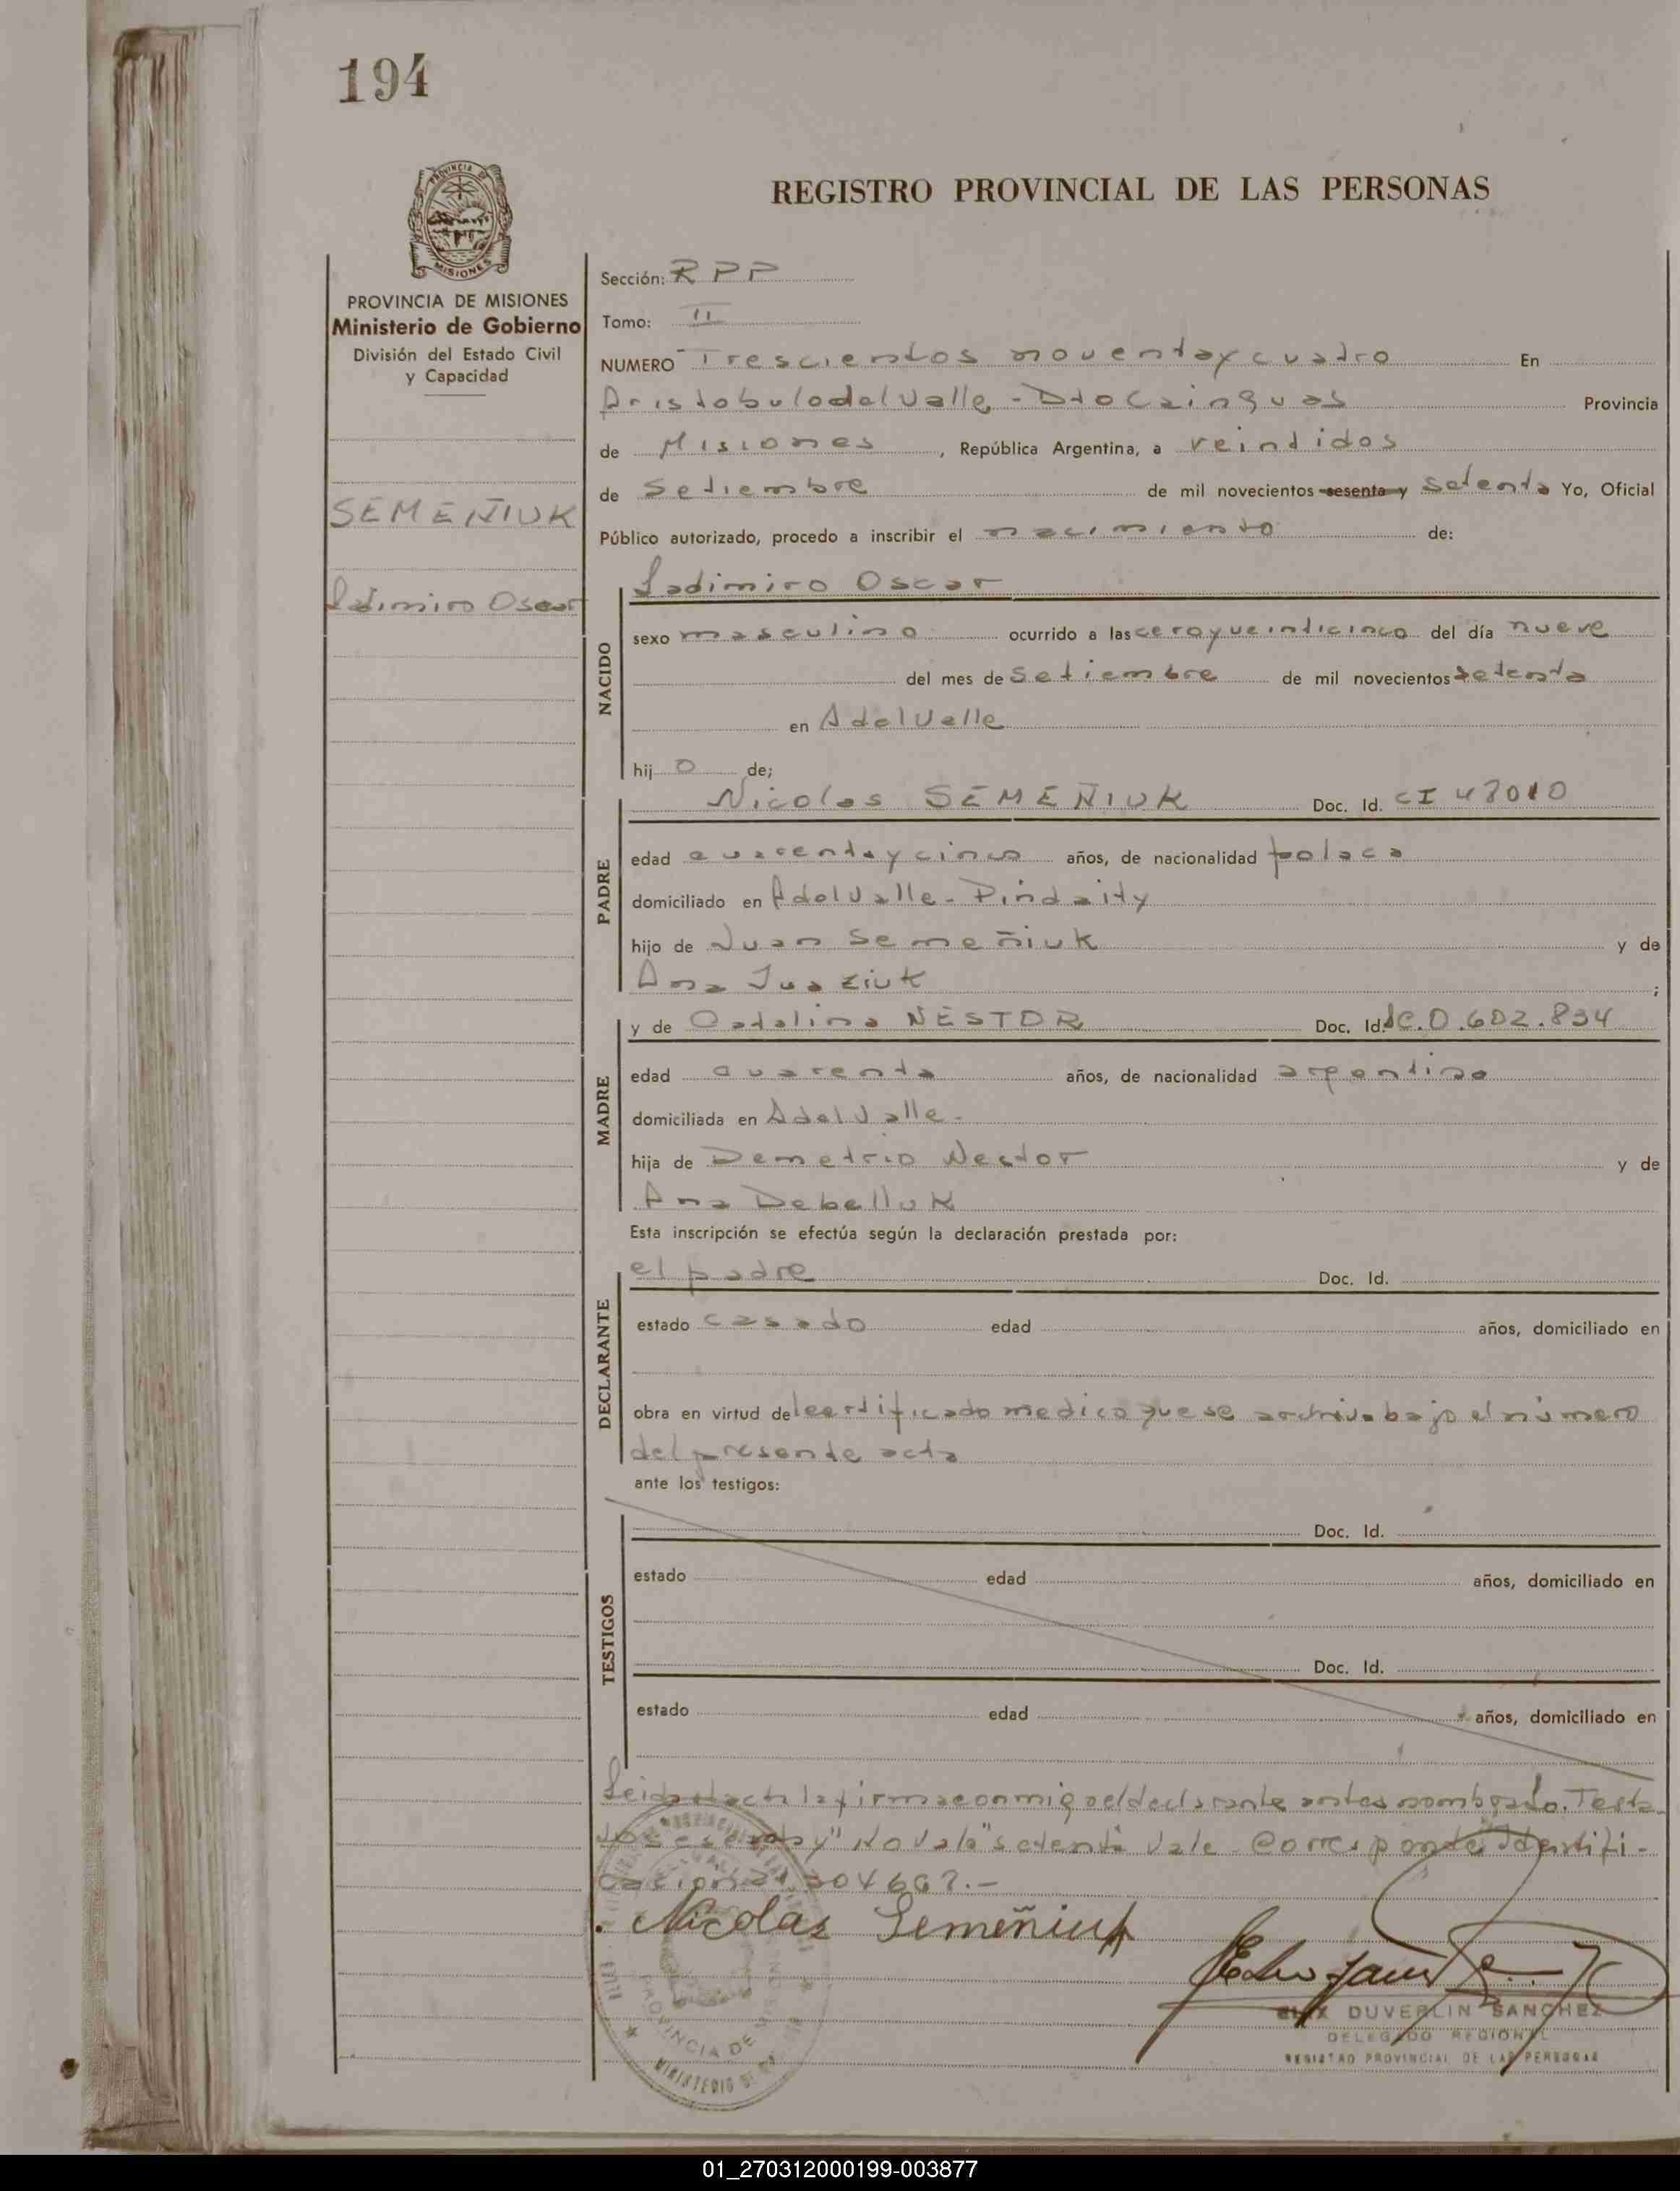 194
PROVINCIA DE
MISIONES
REGISTRO PROVINCIAL DE LAS PERSONAS
PROVINCIA DE MISIONES
Ministerio de Gobierno
División del Estado Civil
y Capacidad
SEMEÑIUK
Ladimiro Oscar
Sección: RPP
Tomo: II
NUMERO Trescientos noventa y cuatro En
Aristobulo del Valle - Dto Cainguas Provincia
de Misiones, República Argentina, a veintidos
de Setiembre de mil novecientos sesenta y setenta Yo, Oficial
Público autorizado, procedo a inscribir el nacimiento de:
NACIDO
Ladimiro Oscar
sexo masculino ocurrido a las cero y veinticinco del día nueve
del mes de Setiembre de mil novecientos setenta
en A del Valle
hijo de;
PADRE
Nicolas SEMEÑIUK Doc. Id. CI 48010
edad cuarenta y cinco años, de nacionalidad polaca
domiciliado en A del Valle - Pindaity
hijo de Juan Semeñiuk y de
Ana ;
MADRE
y de Catalina NESTOR Doc. Id. LC.0.602.834
edad cuarenta años, de nacionalidad argentina
domiciliada en A del Valle -
hija de Demetrio Nestor y de
Ana Debelluk
Esta inscripción se efectúa según la declaración prestada por:
DECLARANTE
el padre Doc. Id.
estado casado edad años, domiciliado en
obra en virtud del certificado medico que se archiva bajo el número
del presente acta
ante los testigos:
TESTIGOS
Doc. Id.
estado edad años, domiciliado en
Doc. Id.
estado edad años, domiciliado en
Leida el acta la firma conmigo el declarante antes nombrado. Testa-
do "sesenta y" No Vale "setenta" Vale. Corresponde Identifi-
cacion
Nicolas Semeñiuk
DUVERLIN SANCHEZ
DELEGADO REGIONAL
REGISTRO PROVINCIAL DE LAS PERSONAS
PROVINCIA DE
MINISTERIO DE
01_270312000199-003877